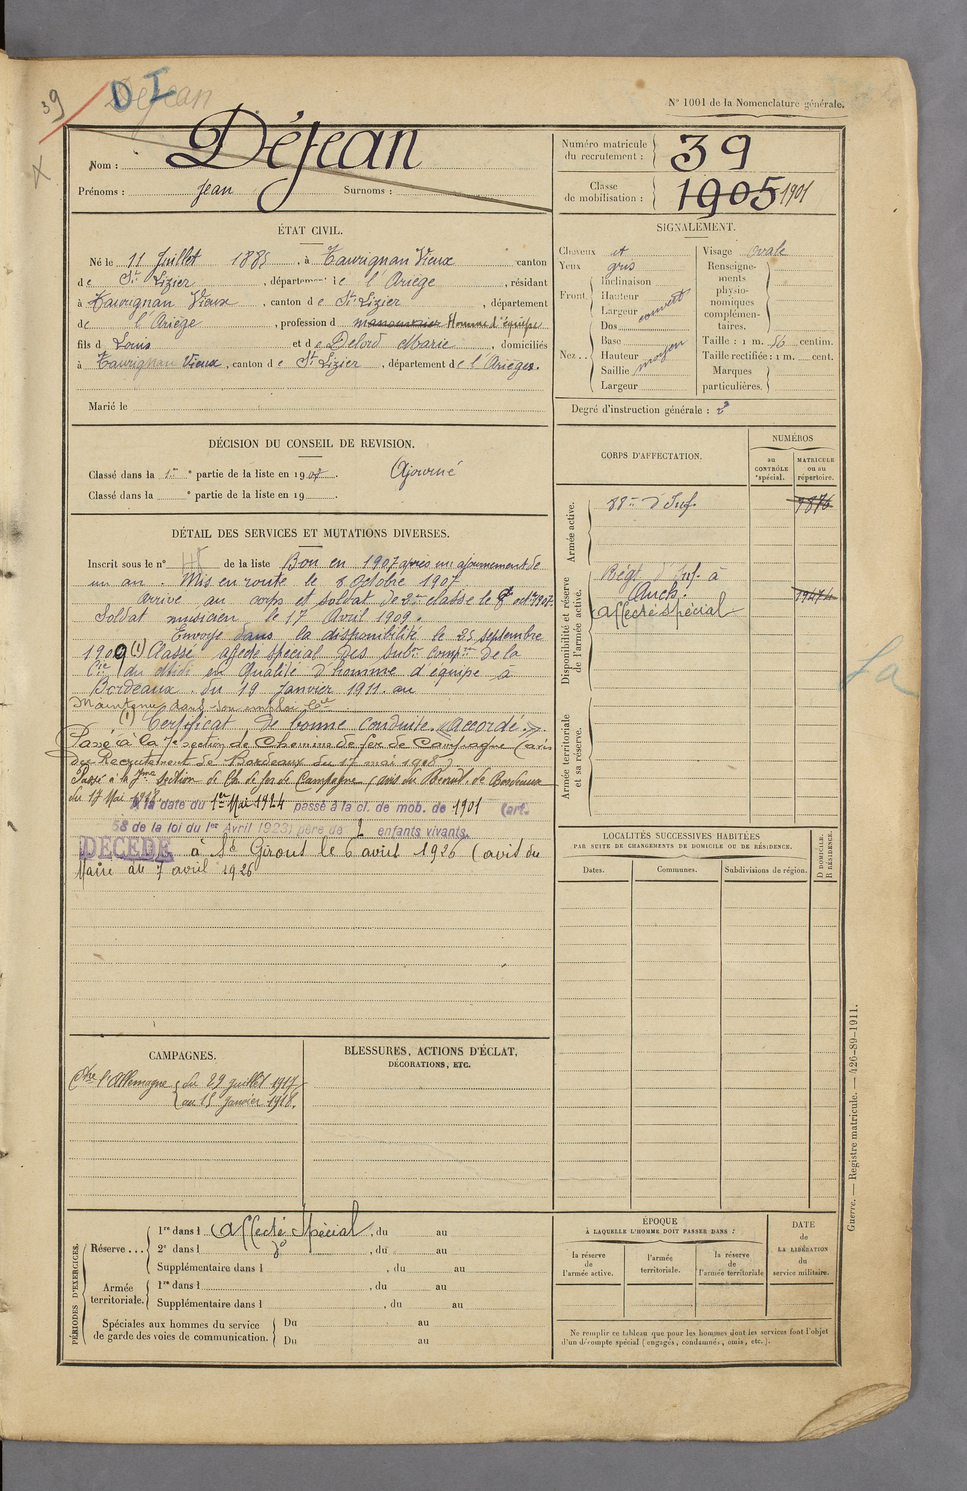 39
Dejean
DI
N° 1001 de la Nomenclature générale.
Nom : Déjean
Prénoms : Jean Surnoms :
Numéro matricule du recrutement : 39
Classe de mobilisation : 1905 1901
ÉTAT CIVIL.
Né le 11 Juillet 1885, à Taurignan Vieux canton
de St Lizier, département de l'Ariège, résidant
à Taurignan Vieux, canton de St Lizier, département
de l'Ariège, profession d manouvrier Homme d'équipe
fils d Louis et de Delord Marie, domiciliés
à Taurignan Vieux, canton de St Lizier, département de l'Ariège.
Marié le
SIGNALEMENT.
Cheveux et
Yeux gris
Front. Inclinaison
Hauteur
Largeur couvert
Nez.. Dos
Base
Hauteur moyen
Saillie
Largeur
Visage ovale
Renseignements physionomiques complémentaires.
Taille : 1 m. 56 centim.
Taille rectifiée : 1 m. cent.
Marques particulières.
Degré d'instruction générale : 2
DÉCISION DU CONSEIL DE REVISION.
Classé dans la 1re partie de la liste en 1907. Ajourné
Classé dans la e partie de la liste en 19
DÉTAIL DES SERVICES ET MUTATIONS DIVERSES.
Inscrit sous le n° de la liste Bon en 1907 après un ajournement de
un an. Mis en route le 8 Octobre 1907
arrivé au corps et soldat de 2me classe le 8 oct 1907.
Soldat musicien le 17 Avril 1909.
Envoyé dans la disponibilité le 25 septembre
1909 (1) Classé affecté spécial des subon compre de la
Cie du Midi en Qualité d'homme d'équipe à
Bordeaux. du 19 Janvier 1911. au
Maintenu dans son emploi
(1) Certificat de bonne conduite « accordé. »
Passé à la 7e section de Chemins de fer de Campagne (avis
du Recrutement de Bordeaux du 17 mai 1918)
Passé à la 7me section de Ch. de fer de Campagne (avis du Recrut. de Bordeaux
du 17 Mai 1918.
A la date du 1er Mai 1924 passé à la cl. de mob. de 1901 (art.
58 de la loi du 1er Avril 1923) père de 2 enfants vivants.
DÉCÉDÉ à St Girons le 6 avril 1926 (avis du
Maire du 7 avril 1926
CORPS D'AFFECTATION.
NUMÉROS
au CONTRÔLE spécial.
MATRICULE ou au répertoire.
Armée active.
88me d'Inf. 9876
Disponibilité et réserve de l'armée active.
Régt d'Inf. à
Auch.
Affecté spécial
Armée territoriale et sa réserve.
LOCALITÉS SUCCESSIVES HABITÉES
PAR SUITE DE CHANGEMENTS DE DOMICILE OU DE RÉSIDENCE.
Dates. Communes. Subdivisions de région. D DOMICILE. R RÉSIDENCE.
CAMPAGNES.
Ctre l'Allemagne du 29 juillet 1917
au 15 Janvier 1918.
BLESSURES, ACTIONS D'ÉCLAT,
DÉCORATIONS, ETC.
PÉRIODES D'EXERCICES.
Réserve... 1re dans l Affecté Spécial, du au
2e dans l do, du au
Supplémentaire dans l , du au
Armée territoriale. 1re dans l , du au
Supplémentaire dans l , du au
Spéciales aux hommes du service de garde des voies de communication. Du au
Du au
ÉPOQUE
À LAQUELLE L'HOMME DOIT PASSER DANS :
la réserve de l'armée active.
l'armée territoriale.
la réserve de l'armée territoriale
DATE de LA LIBÉRATION du service militaire.
Ne remplir ce tableau que pour les hommes dont les services font l'objet
d'un décompte spécial (engagés, condamnés, omis, etc.).
Guerre. — Registre matricule. — 426-89-1911.